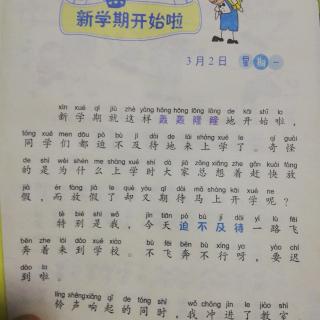 新学期开始啦
3月2日 星期一
xīn xué qī jiù zhè yàng hōng hōng lōng lōng de kāi shǐ la
新学期就这样轰轰隆隆地开始啦，
tóng xué men dōu pò bù jí dài de lái shàng xué le qí guài
同学们都迫不及待地来上学了。奇怪
de shì wèi shén me shàng xué shí dà jiā zǒng xiǎng zhe gǎn kuài fàng
的是为什么上学时大家总想着赶快放
jià ér fàng jià le què yòu qī dài mǎ shàng kāi xué ne
假，而放假了却又期待马上开学呢？
tè bié shì wǒ jīn tiān pò bù jí dài yí lù fēi
特别是我，今天迫不及待一路飞
bēn zhe lái dào xué xiào bù fēi bēn bù xíng ya yào chí
奔着来到学校。不飞奔不行呀，要迟
dào la
到啦。
líng shēng xiǎng qǐ de tóng shí wǒ chōng jìn le jiào shì
铃声响起的同时，我冲进了教室